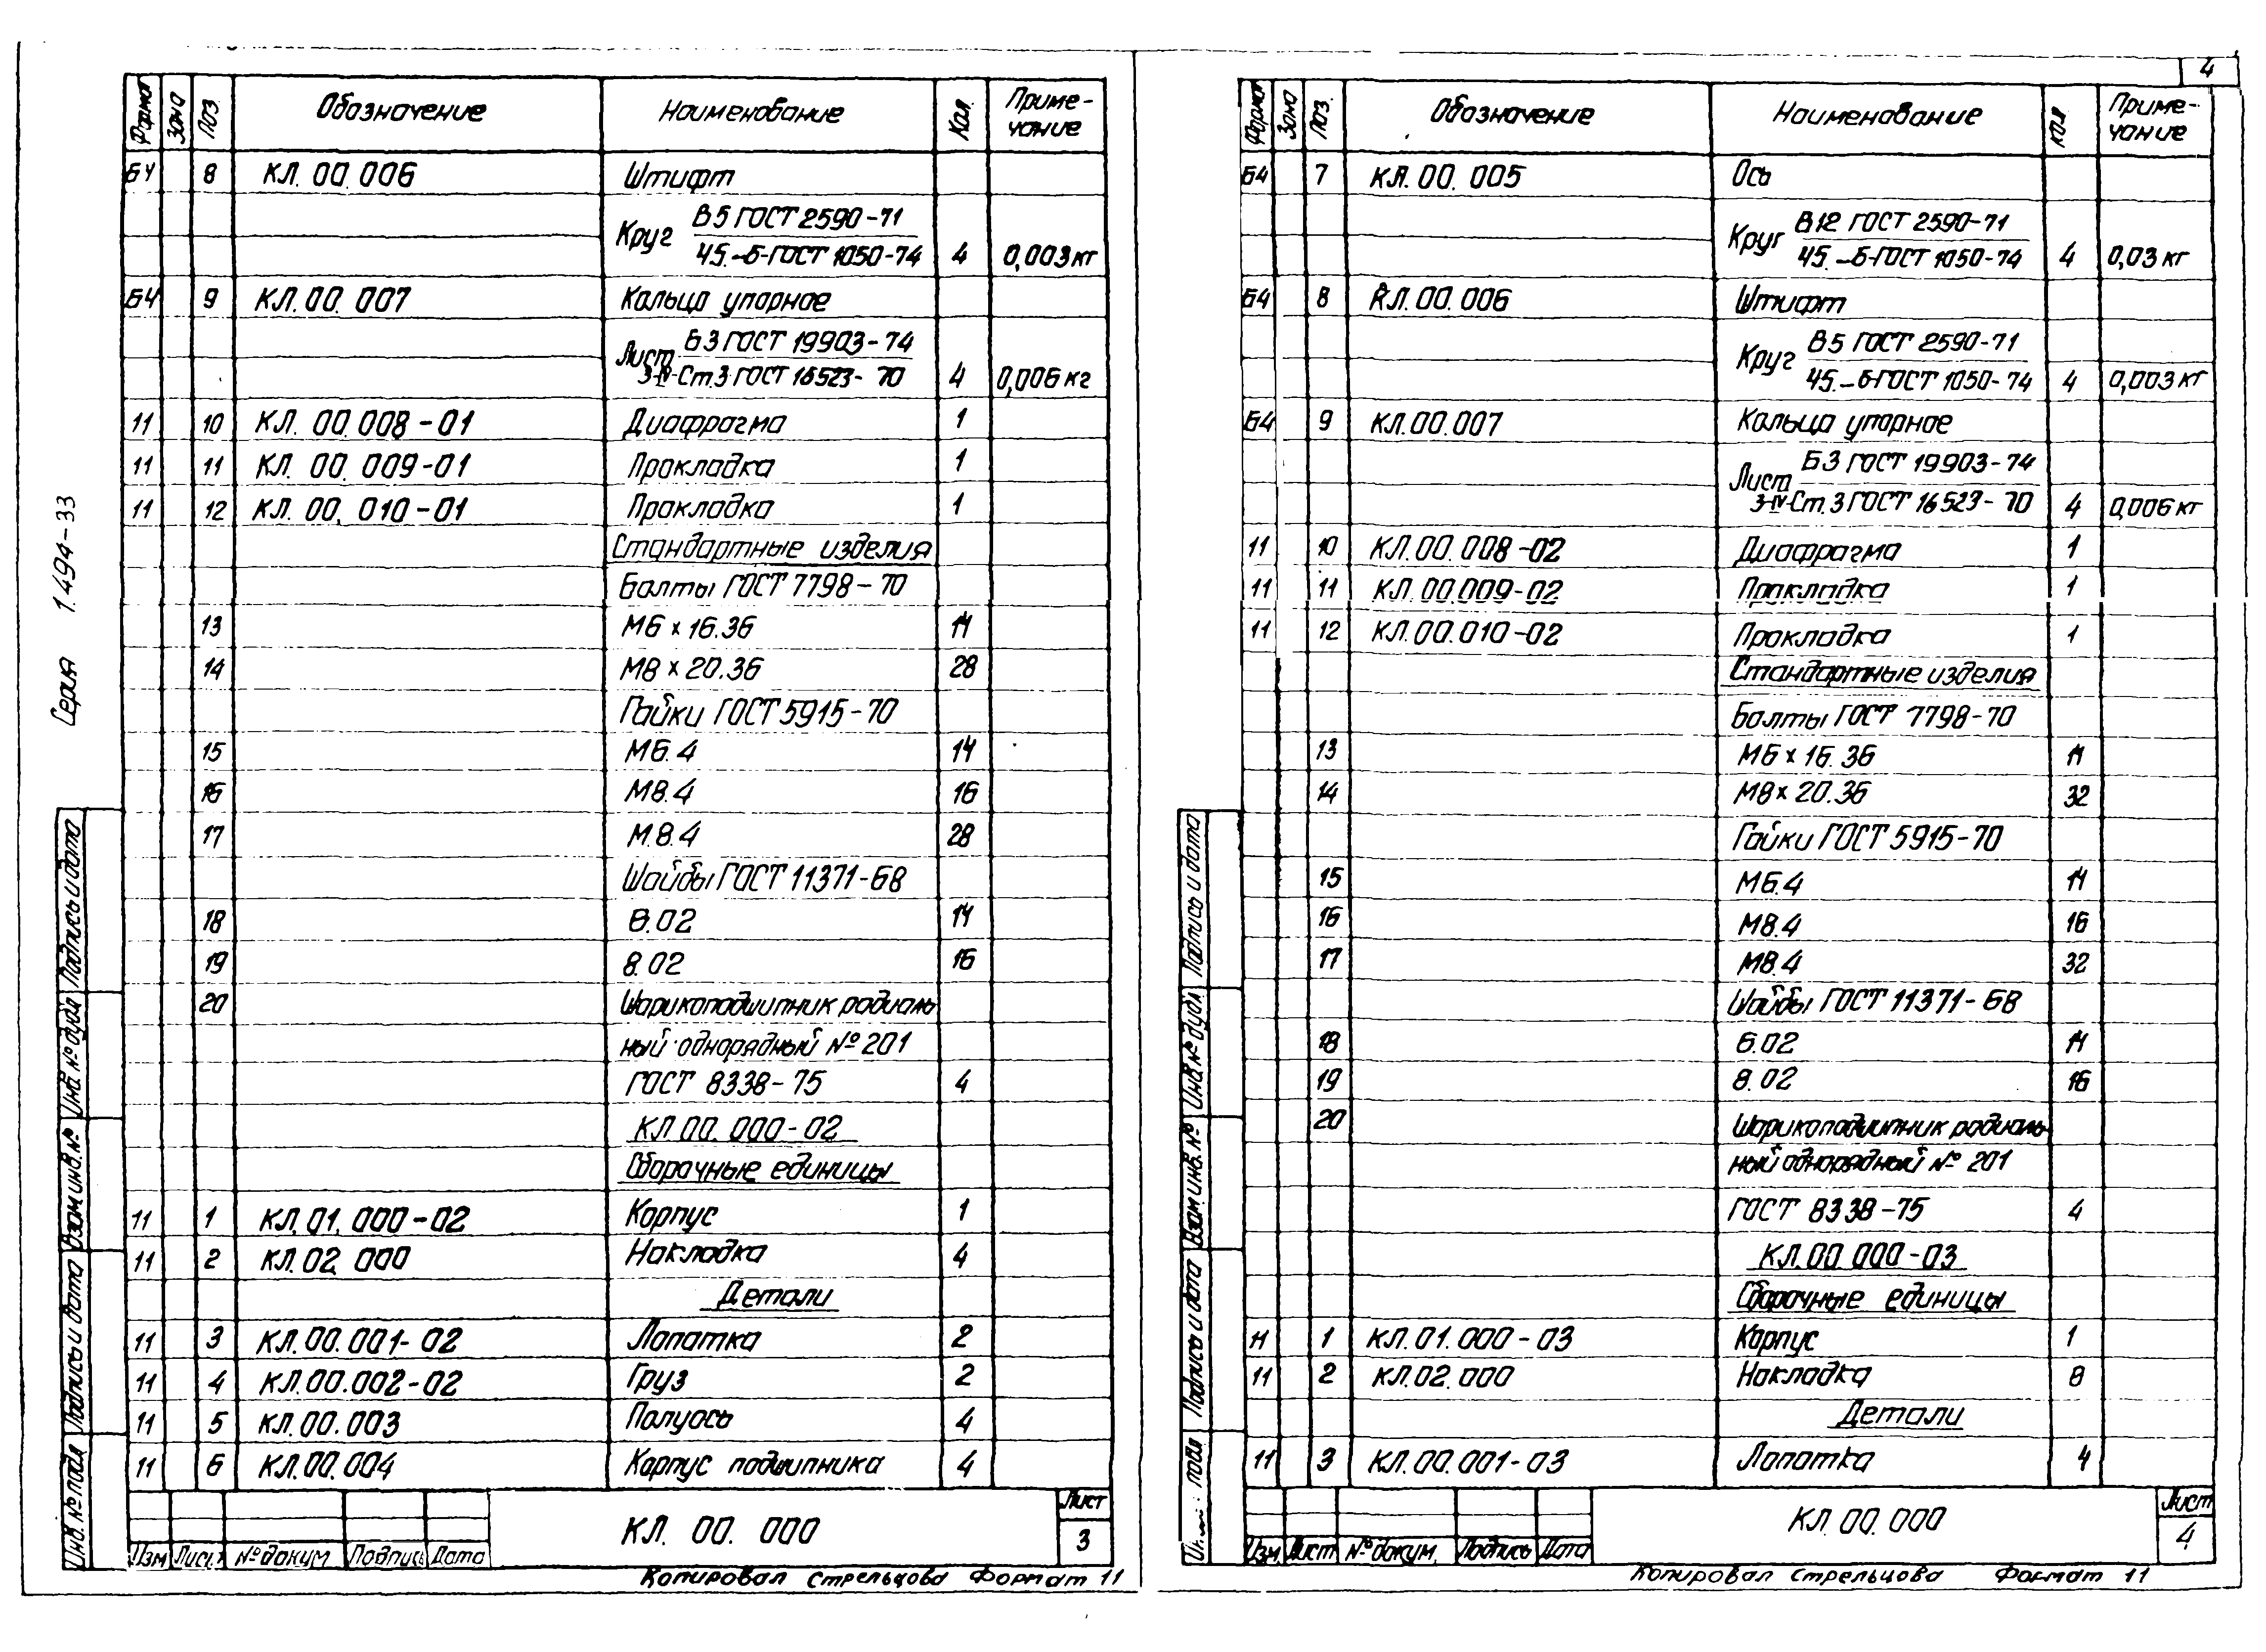 Серия 1.494-33
Формат Зона Поз. Обозначение Наименование Кол. Приме-
чание
БЧ 8 КЛ. 00. 006 Штифт
В5 ГОСТ 2590-71
Круг
45.-Б-ГОСТ 1050-74 4 0,003 кг
БЧ 9 КЛ.00. 007 Кольцо упорное
Б3 ГОСТ 19903-74
Лист
3-IV-Ст.3 ГОСТ 16523-70 4 0,006 кг
11 10 КЛ. 00.008-01 Диафрагма 1
11 11 КЛ. 00. 009-01 Прокладка 1
11 12 КЛ. 00. 010-01 Прокладка 1
Стандартные изделия
Болты ГОСТ 7798-70
13 М6 х 16.36 14
14 М8 х 20.36 28
Гайки ГОСТ 5915-70
15 М6.4 14
16 М8.4 16
17 М.8.4 28
Шайбы ГОСТ 11371-68
18 6.02 14
19 8.02 16
20 Шарикоподшипник радиаль
ный однорядный № 201
ГОСТ 8338-75 4
КЛ.00. 000-02
Сборочные единицы
11 1 КЛ.01. 000-02 Корпус 1
11 2 КЛ.02 000 Накладка 4
Детали
11 3 КЛ.00.001-02 Лопатка 2
11 4 КЛ.00.002-02 Груз 2
11 5 КЛ.00.003 Полуось 4
11 6 КЛ.00.004 Корпус подшипника 4
Инв.№ подл Подпись и дата Взам.инв.№ Инв.№ дубл Подпись и дата
Изм Лист №докум Подпись Дата
КЛ. 00. 000
Лист
3
Копировал Стрельцова Формат 11
4
Формат Зона Поз. Обозначение Наименование Кол Приме-
чание
Б4 7 КЛ.00. 005 Ось
В12 ГОСТ 2590-71
Круг
45.-Б-ГОСТ 1050-74 4 0,03 кг
Б4 8 КЛ.00.006 Штифт
В5 ГОСТ 2590-71
Круг
45.-Б-ГОСТ 1050-74 4 0,003 кг
Б4 9 КЛ.00.007 Кольцо упорное
Б3 ГОСТ 19903-74
Лист
3-IV-Ст.3 ГОСТ 16523-70 4 0,006 кг
11 10 КЛ.00.008-02 Диафрагма 1
11 11 КЛ.00.009-02 Прокладка 1
11 12 КЛ.00.010-02 Прокладка 1
Стандартные изделия
Болты ГОСТ 7798-70
13 М6 х 16.36 14
14 М8 х 20.36 32
Гайки ГОСТ 5915-70
15 М6.4 14
16 М8.4 16
17 М8.4 32
Шайбы ГОСТ 11371-68
18 6.02 14
19 8.02 16
20 Шарикоподшипник радиаль
ный однорядный № 201
ГОСТ 8338-75 4
КЛ.00 000-03
Сборочные единицы
11 1 КЛ.01.000-03 Корпус 1
11 2 КЛ.02.000 Накладка 8
Детали
11 3 КЛ.00.001-03 Лопатка 4
подл Подпись и дата Взам.инв.№ Инв.№ дубл Подпись и дата
Изм. Лист №докум. Подпись Дата
КЛ.00.000
Лист
4
Копировал Стрельцова Формат 11